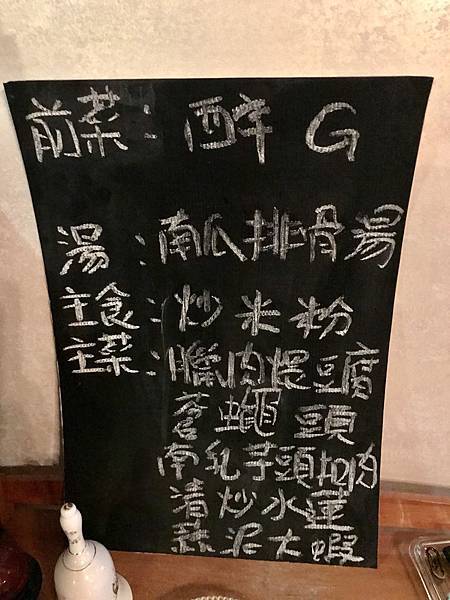 前菜：醉 G
湯：南瓜排骨湯
主食：炒米粉
主菜：臘肉煨豆腐
蒼蠅頭
南乳芋頭扣肉
清炒水蓮
蒜泥大蝦